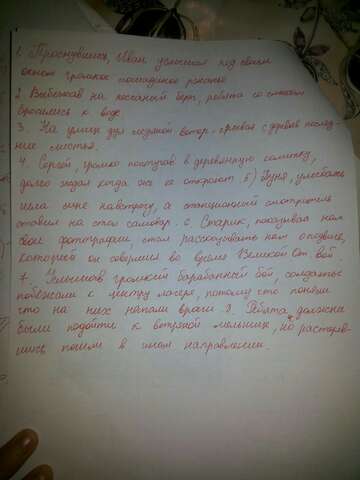 1. Проснувшись, Иван услышал под своим
окном громкое лошадиное ржанье
2. Выбежав на песчаный берег, ребята со смехом
бросились к воде
3. На улице дул ледяной ветер, срывая с деревьев послед-
ние листья.
4. Сергей, громко постучав в деревянную калитку,
долго ждал когда же ее откроют. 5) Дуня, улыбаясь
шла мне навстречу, а станционный смотритель
ставил на стол самовар. 6 Старик, показывая нам
свои фотографии, стал рассказывать нам о подвиге,
который он совершил во время Великой От. вой.
7. Услышав громкий барабанный бой, солдаты
побежали к центру лагеря, потому что поняли
что на них напали враги 8. Ребята должны
были подойти к ветряной мельнице, но растеряв-
шись, пошли в ином направлении.